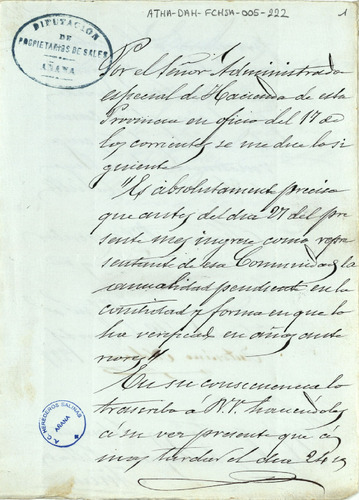 ATHA-DAH-FCHSA-005-222
1
DIPUTACION
DE
PROPIETARIOS DE SALES
AÑANA
Por el Señor Administrador
especial de Hacienda de esta
Provincia en oficio del 17 de
los corrientes se me dice lo si
guiente
"Es absolutamente preciso
que antes del dia 27 del pre
sente mes ingrese como repre
sentante de esa Comunidad la
anualidad pendiente en la
cantidad y forma en que lo
ha verificado en años ante
riores"
En su consecuencia lo
trascribo á V. haciendole
á su vez presente que á
mas tardar el dia 24
HEREDEROS SALINAS
AÑANA